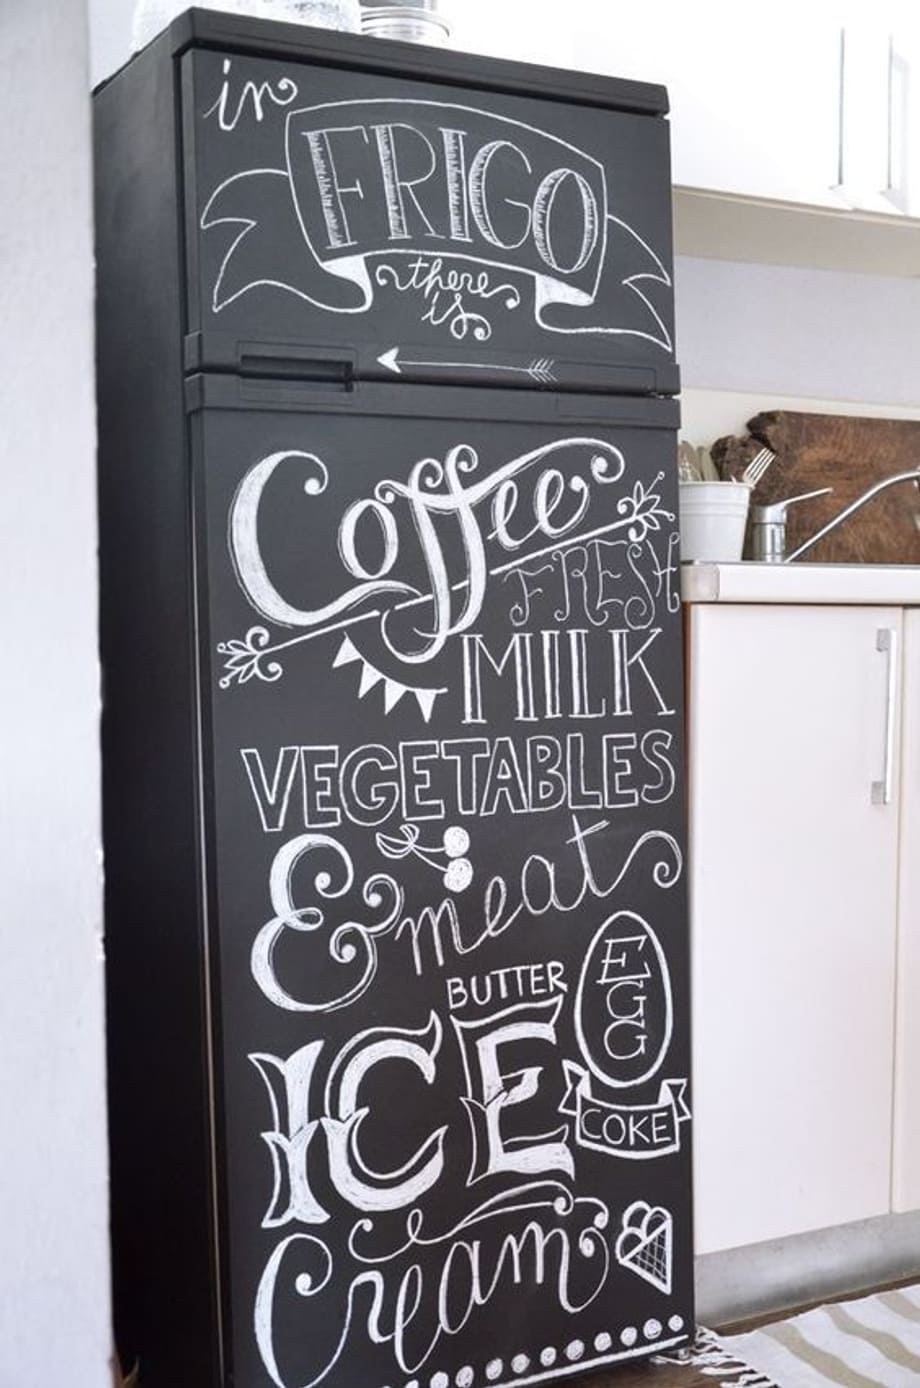 in
FRIGO
there
is
Coffee
FRESH
MILK
VEGETABLES
& meat
BUTTER
EGG
ICE
COKE
Cream